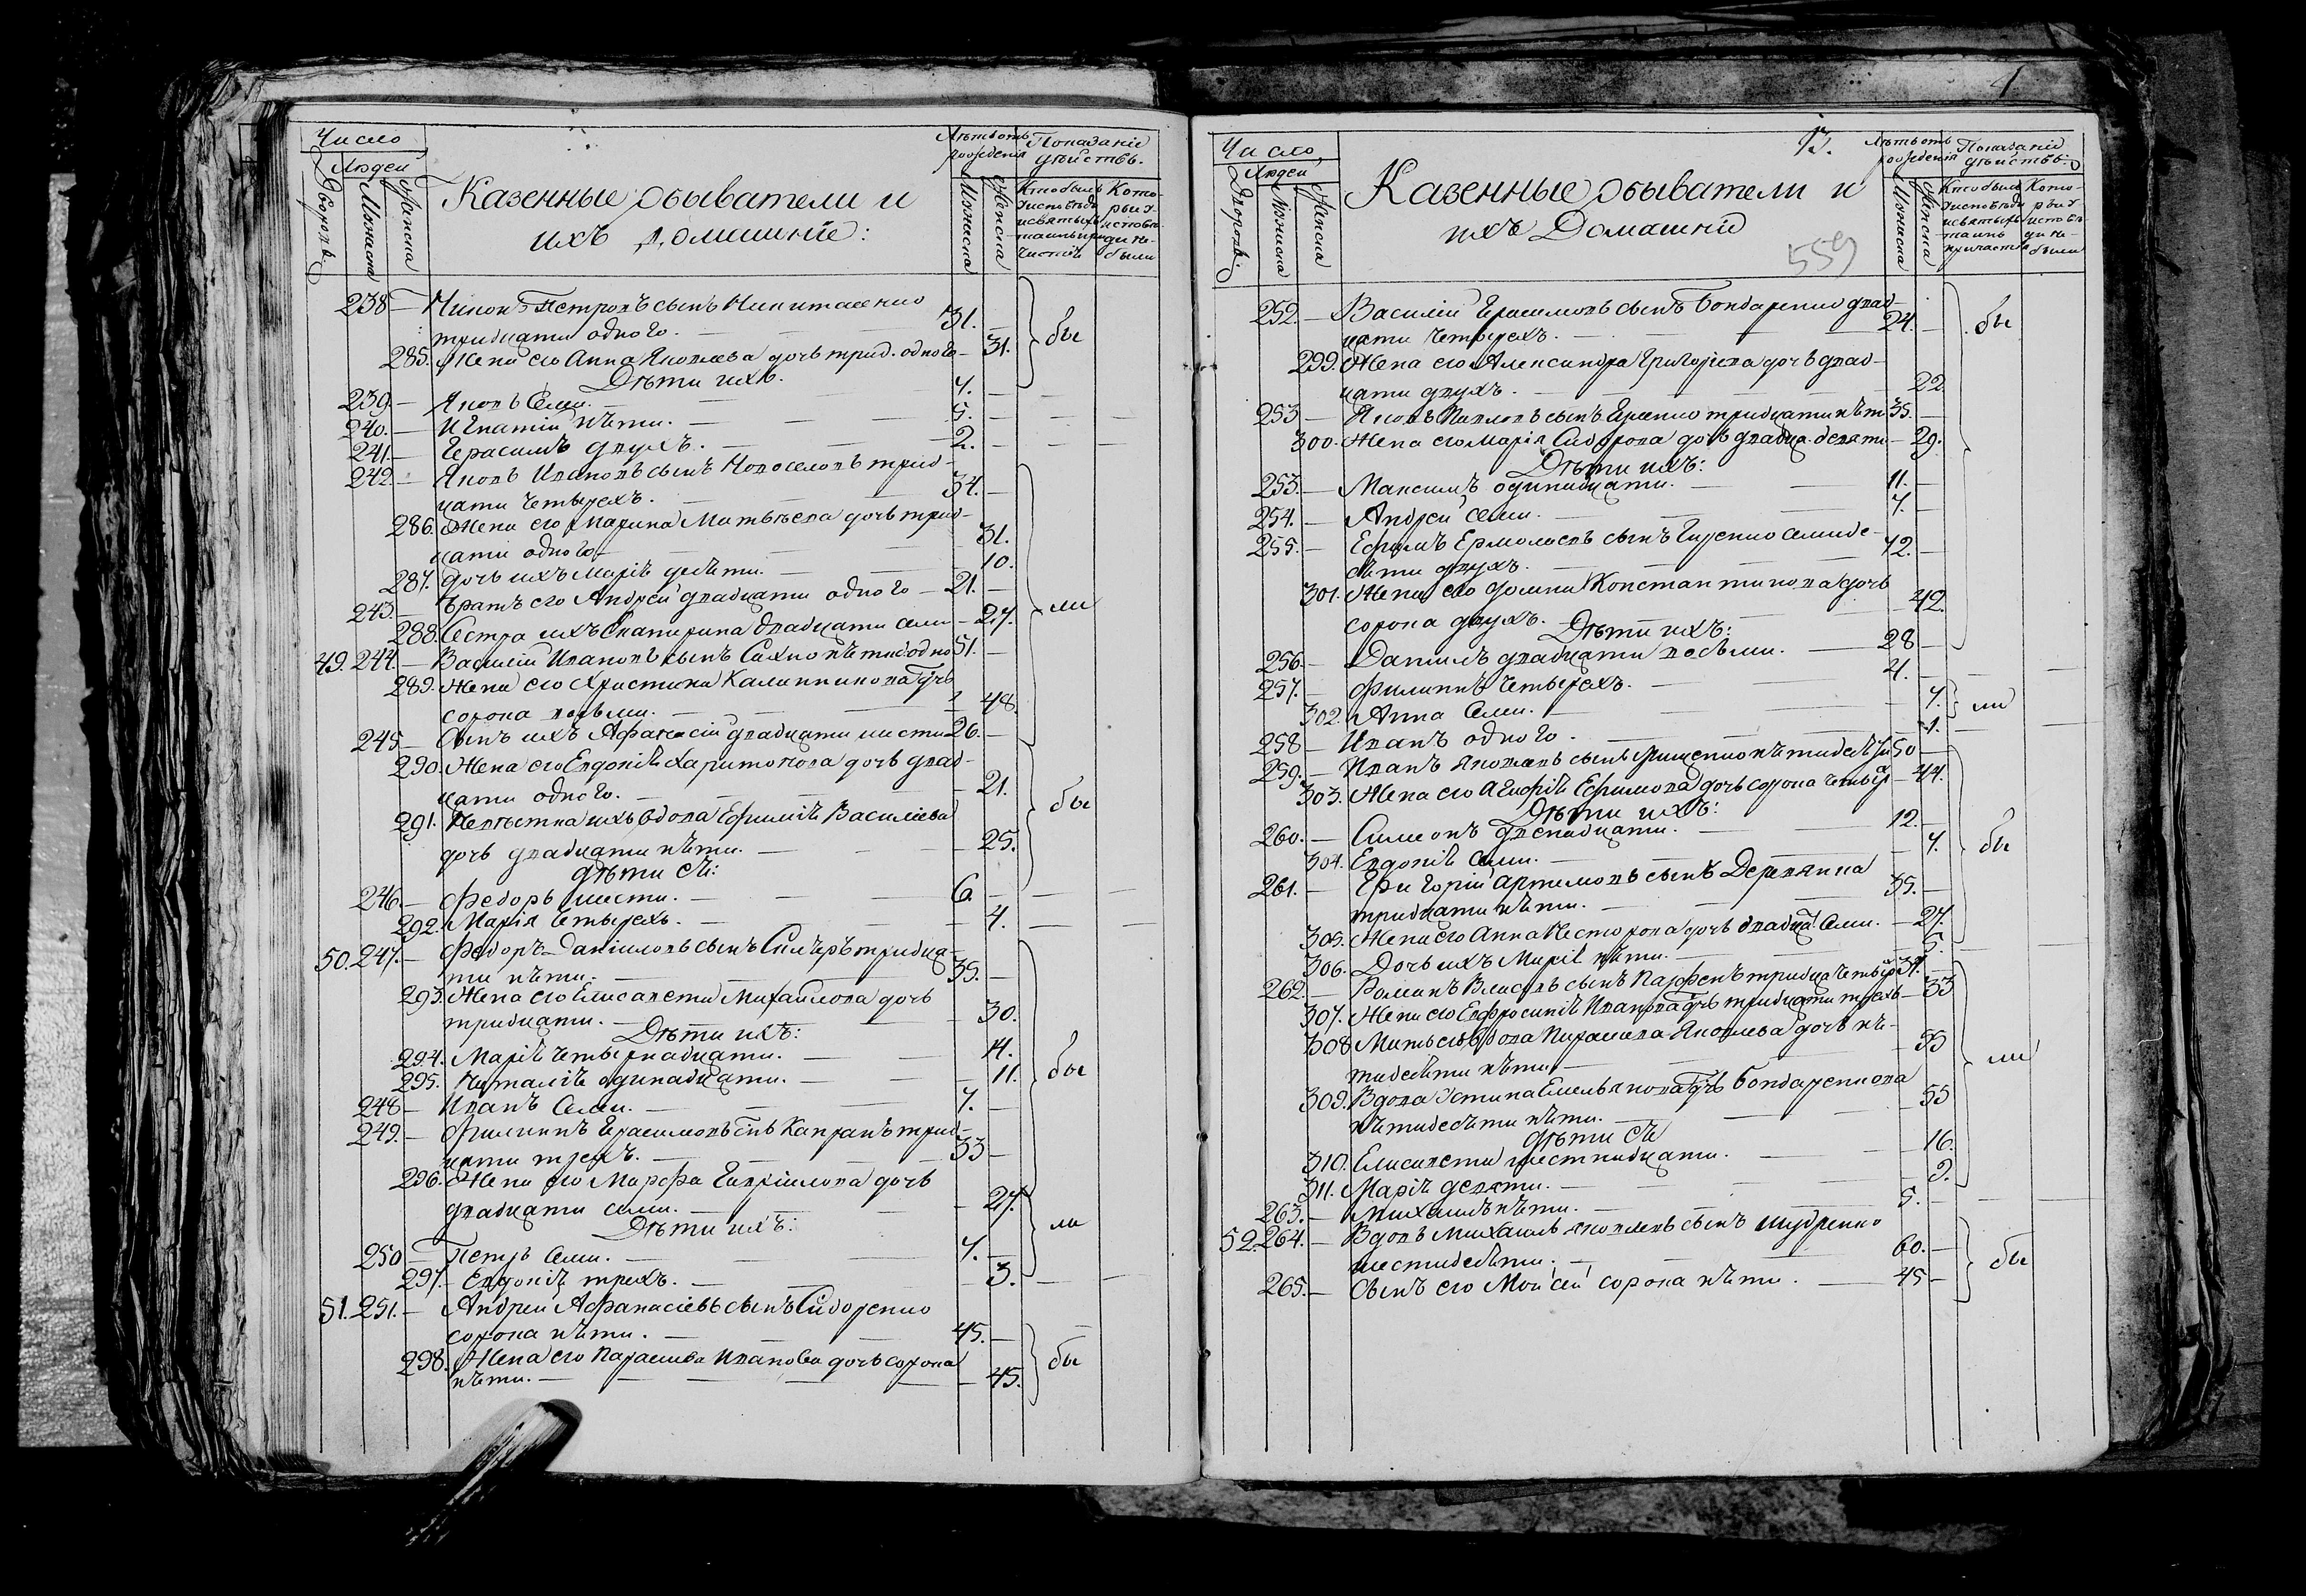 Число
Людей
Дворовъ.
Мужеска
Женска
Казенные обыватели и
ихъ домашніе:
Лѣтъ отъ
рожденія
Мужеска
Женска
Показаніе
дѣйствъ.
Кто былъ
у исповѣди
и святыхъ
таинъ при-
частій
Кото-
рыи у
исповѣ-
ди не
были
238 — Никонъ Петровъ сынъ Никитаенко
тридцати одного. — 31. —
285. Жена его Анна Яковлева дочь трид. одного — 31.
бы
Дѣти ихъ.
239. — Яковъ Семи. — 7. —
240. — Игнатій пѣти. — 5. —
241. — Герасимъ двухъ. — 2. —
242 — Яковъ Ивановъ сынъ Новоселовъ трид-
цати четырехъ. — 34. —
286. Жена его Марина Матвѣева дочь трид-
цати одного — 31.
287. Дочь ихъ Марія десѣти. — 10.
243. — Братъ его Андрей двадцати одного — 21. —
ли
288. Сестра ихъ Екатерина двадцати семи — 27.
49. 244. — Василій Ивановъ сынъ Сахно пѣтид одно 51. —
289. Жена его Христина Калинникова дочь
сорока восьми. — 48.
245 — Сынъ ихъ Афанасій двадцати шести 26. —
290. Жена его Евдокіѣ Харитонова дочь двад-
цати одного. — 21.
бы
291. Невѣстка ихъ вдова Ефиміѣ Василіева
дочь двадцати пѣти. — 25.
Дѣти еѣ:
246. — Федоръ шести. — 6. —
292. Марія четырехъ. — 4.
50. 247. — Федоръ Даніиловъ сынъ тридца-
ти пѣти. — 35. —
293. Жена его Елисавета Михайлова дочь
тридцати. — 30.
Дѣти ихъ:
294. Маріѣ четырнадцати. — 14.
295. Наталіѣ одинадцати. — 11.
бы
248 — Иванъ Семи. — 7. —
249. — Филиппъ Герасимовъ сынъ Капранъ трид-
цати трехъ. — 33 —
296. Жена его Марфа Гавріилова дочь
двадцати семи. — 27.
Дѣти ихъ:
ли
250 — Петръ Семи. — 7. —
297. Евдокіѣ трехъ. — 3.
51. 251. — Андрей Афанасіевъ сынъ Сидоренко
сорока пѣти. — 45. —
298. Жена его Параскева Иванова дочь сорока
пѣти. — 45.
бы
Число
Людей
Дворовъ.
Мужеска
Женска
13.
Казенные обыватели и
ихъ Домашніе
559
Лѣтъ отъ
рожденія
Мужеска
Женска
Показаніе
дѣйствъ.
Кто былъ
у исповѣди
и святыхъ
таинъ
причастія
Кото-
рыи у
исповѣ-
ди не
были
252. — Василій Герасимовъ сынъ Бондаренко двад-
цати четырехъ. — 24. —
бы
299. Жена его Александра Григоріева дочь двад-
цати двухъ. — 22
253 — Яковъ Павловъ сынъ тридцати пѣти 35. —
300. Жена его Марія Сидорова дочь двадца. девяти — 29.
Дѣти ихъ:
253. — Максимъ одинадцати. — 11. —
254. — Андрей семи. — 7. —
255. — Ефимъ Ермолаевъ сынъ Гиренко семиде-
сѣти двухъ. — 72. —
301. Жена его Домна Константинова дочь
сорока двухъ. — 42.
Дѣти ихъ:
256. — Даніилъ двадцати восьми. — 28 —
257. — Филиппъ четырехъ. — 4. —
302. Анна Семи. — 7.
ли
258 — Иванъ одного. — 1. —
259. — Иванъ Яковлевъ сынъ Грищенко пѣтидесѣти 50 —
303. Жена его Агафіѣ Ефимова дочь сорока четыр — 44.
Дѣти ихъ:
260. — Симеонъ двенадцати. — 12. —
304. Евдокіѣ Семи. — 7.
бы
261. — Григорій Артемовъ сынъ Деревянка
тридцати пѣти. — 35. —
305. Жена его Анна Несторова дочь двадца. Семи. — 27.
306. Дочь ихъ Маріѣ пѣти. — 5.
262. — Романъ Власовъ сынъ Парфенъ тридца четыр 34. —
307. Жена его Евфросиніѣ Иванова дочь тридцати трехъ — 33
308 Мать его вдова Параскева Яковлева дочь пѣ-
тидесѣти пѣти — 55
ли
309. Вдова Устина Емельянова дочь Бондаренкова
пѣтидесѣти пѣти. — 55
Дѣти еѣ
310. Елисавета шестнадцати. — 16.
311. Маріѣ девяти. — 9.
263. — Михаилъ пѣти. — 5. —
52. 264. — Вдовъ Михаилъ Яковлевъ сынъ Шудренко
шестидесѣти. — 60. —
бы
265. — Сынъ его Моѵсей сорока пѣти. — 45 —